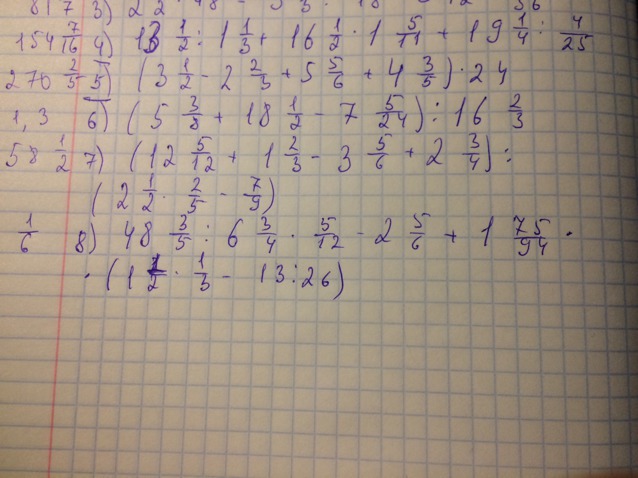 154 7/16 4) 13 1/2 : 1 1/3 + 16 1/2 · 1 5/11 + 19 1/4 : 4/25
270 2/5 5) (3 1/2 - 2 2/3 + 5 5/6 + 4 3/5) · 24
1,3 6) (5 3/8 + 18 1/2 - 7 5/24) : 16 2/3
58 1/2 7) (12 5/12 + 1 2/3 - 3 5/6 + 2 3/4) :
(2 1/2 · 2/5 - 7/9)
1/6 8) 48 3/5 : 6 3/4 · 5/12 - 2 5/6 + 1 75/94 ·
· (1 1/2 · 1/3 - 13 : 26)